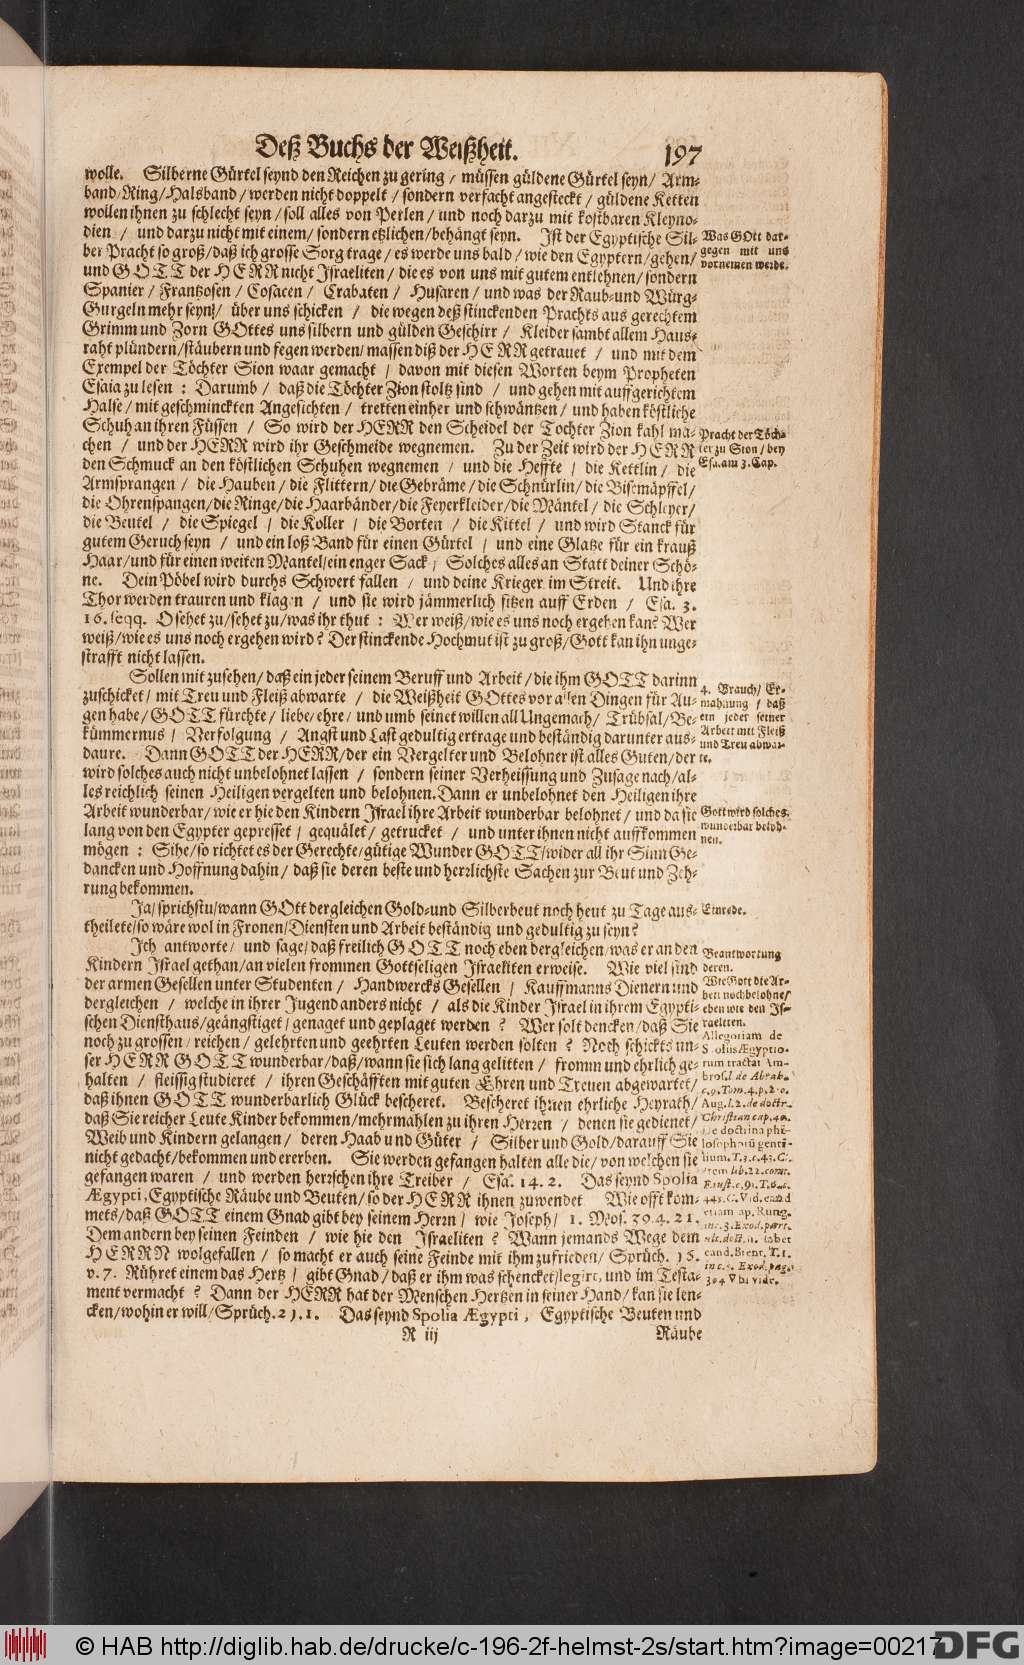 Deß Buchs der Weißheit. 197
wolle. Silberne Gürtel seynd den Reichen zu gering / müssen güldene Gürtel seyn / Arm-
band / Ring / Halsband / werden nicht doppelt / sondern verfacht angesteckt / güldene Ketten
wollen ihnen zu schlecht seyn / soll alles von Perlen / und noch darzu mit kostbaren Kleyno-
dien / und darzu nicht mit einem / sondern etzlichen / behängt seyn. Ist der Egyptische Sil-
ber Pracht so groß / daß ich grosse Sorg trage / es werde uns bald / wie den Egyptern / gehen /
und GOTT der HERR nicht Israeliten / die es von uns mit gutem entlehnen / sondern
Spanier / Frantzosen / Cosacen / Crabaten / Husaren / und was der Raub- und Würg-
Gurgeln mehr seyn / über uns schicken / die wegen deß stinckenden Prachts aus gerechtem
Grimm und Zorn GOttes uns silbern und gülden Geschirr / Kleider sambt allem Haus-
raht plündern / stäubern und fegen werden / massen diß der HERR getrauet / und mit dem
Exempel der Töchter Sion waar gemacht / davon mit diesen Worten beym Propheten
Esaia zu lesen : Darumb / daß die Töchter Zion stoltz sind / und gehen mit auffgerichtem
Halse / mit geschminckten Angesichten / tretten einher und schwäntzen / und haben köstliche
Schuh an ihren Füssen / So wird der HERR den Scheidel der Tochter Zion kahl ma-
chen / und der HERR wird ihr Geschmeide wegnemen. Zu der Zeit wird der HERR
den Schmuck an den köstlichen Schuhen wegnemen / und die Heffte / die Kettlin / die
Armsprangen / die Hauben / die Flittern / die Gebräme / die Schnürlin / die Bisemäpffel /
die Ohrenspangen / die Ringe / die Haarbänder / die Feyerkleider / die Mäntel / die Schleyer /
die Beutel / die Spiegel / die Koller / die Borten / die Kittel / und wird Stanck für
gutem Geruch seyn / und ein loß Band für einen Gürtel / und eine Glatze für ein krauß
Haar / und für einen weiten Mantel / ein enger Sack / Solches alles an Statt deiner Schö-
ne. Dein Pöbel wird durchs Schwert fallen / und deine Krieger im Streit. Und ihre
Thor werden trauren und klagen / und sie wird jämmerlich sitzen auff Erden / Esa. 3.
16. seqq. O sehet zu / sehet zu / was ihr thut : Wer weiß / wie es uns noch ergehen kan? Wer
weiß / wie es uns noch ergehen wird? Der stinckende Hochmut ist zu groß / Gott kan ihn unge-
strafft nicht lassen.
Sollen mit zusehen / daß ein jeder seinem Beruff und Arbeit / die ihm GOTT darinn
zuschicket / mit Treu und Fleiß abwarte / die Weißheit GOttes vor allen Dingen für Au-
gen habe / GOTT fürchte / liebe / ehre / und umb seinet willen all Ungemach / Trübsal / Be-
kümmernus / Verfolgung / Angst und Last gedultig ertrage und beständig darunter aus-
daure. Dann GOTT der HERR / der ein Vergelter und Belohner ist alles Guten / der
wird solches auch nicht unbelohnet lassen / sondern seiner Verheissung und Zusage nach / al-
les reichlich seinen Heiligen vergelten und belohnen. Dann er unbelohnet den Heiligen ihre
Arbeit wunderbar / wie er hie den Kindern Israel ihre Arbeit wunderbar belohnet / und da sie
lang von den Egypter gepresset / gequälet / getrucket / und unter ihnen nicht auffkommen
mögen : Sihe / so richtet es der Gerechte / gütige Wunder GOTT / wider all ihr Sinn Ge-
dancken und Hoffnung dahin / daß sie deren beste und herrlichste Sachen zur Beut und Zeh-
rung bekommen.
Ja / sprichstu / wann GOtt dergleichen Gold- und Silberbeut noch heut zu Tage aus-
theilete / so wäre wol in Fronen / Diensten und Arbeit beständig und gedultig zu seyn?
Ich antworte / und sage / daß freilich GOTT noch eben dergleichen / was er an den
Kindern Israel gethan / an vielen frommen Gottseligen Israeliten erweise. Wie viel sind
der armen Gesellen unter Studenten / Handwercks Gesellen / Kauffmanns Dienern und
dergleichen / welche in ihrer Jugend anders nicht / als die Kinder Israel in ihrem Egypti-
schen Diensthaus / geängstiget / genaget und geplaget werden? Wer solt dencken / daß Sie
noch zu grossen / reichen / gelehrten und geehrten Leuten werden solten? Noch schickts un-
ser HERR GOTT wunderbar / daß / wann sie sich lang gelitten / fromm und ehrlich ge-
halten / fleissig studieret / ihren Geschäfften mit guten Ehren und Treuen abgewartet /
daß ihnen GOTT wunderbarlich Glück bescheret. Bescheret ihnen ehrliche Heyrath /
daß Sie reicher Leute Kinder bekommen / mehrmahlen zu ihren Herzen / denen sie gedienet /
Weib und Kindern gelangen / deren Haab und Güter / Silber und Gold / darauff Sie
nicht gedacht / bekommen und ererben. Sie werden gefangen halten alle die / von welchen sie
gefangen waren / und werden herrschen ihre Treiber / Esa. 14. 2. Das seynd Spolia
Ægypti, Egyptische Räube und Beuten / so der HERR ihnen zuwendet Wie offt kom-
mets / daß GOTT einem Gnad gibt bey seinem Herrn / wie Joseph / 1. Mos. 39. 4. 21.
Dem andern bey seinen Feinden / wie hie den Israeliten? Wann jemands Wege dem
HERRN wolgefallen / so macht er auch seine Feinde mit ihm zufrieden / Sprüch. 16.
v. 7. Rühret einem das Hertz / gibt Gnad / daß er ihm was schencket / legirt, und im Testa-
ment vermacht? Dann der HERR hat der Menschen Hertzen in seiner Hand / kan sie len-
cken / wohin er will / Sprüch. 21. 1. Das seynd Spolia Ægypti, Egyptische Beuten und
R iij Räube
Was GOtt dar-
gegen mit uns
vornemen werde.
Pracht der Töch-
ter zu Sion / bey
Esa. am 3. Cap.
4. Brauch / Er-
mahnung / daß
ein jeder seiner
Arbeit mit Fleiß
und Treu abwar-
te.
Gott wird solches
wunderbar beloh-
nen.
Einrede.
Beantwortung
deren.
Wie Gott die Ar-
beit noch belohne /
eben wie den Is-
raeliten.
Allegoriam de
Spoliis Ægyptio-
rum tractat Am-
bros. l. de Abrah.
c. 9. Tom. 4. p.
Aug. l. 2. de doctr.
Christian cap. 40.
De doctrina phi-
losophorũ genti-
lium. T. 3. c. 43. C.
Item lib. 22. cont.
Faust. c. 91. T. 6. c.
443. C. Vid. eand
etiam ap. Rung.
inc. 3. Exod. part.
habet
eand. Brent. T. 1.
inc. Exod. pag.
304 Ubi vide.
© HAB http://diglib.hab.de/drucke/c-196-2f-helmst-2s/start.htm?image=00217
DFG